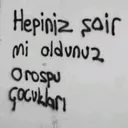 Hepiniz şair
mi oldunuz
orospu
çocukları